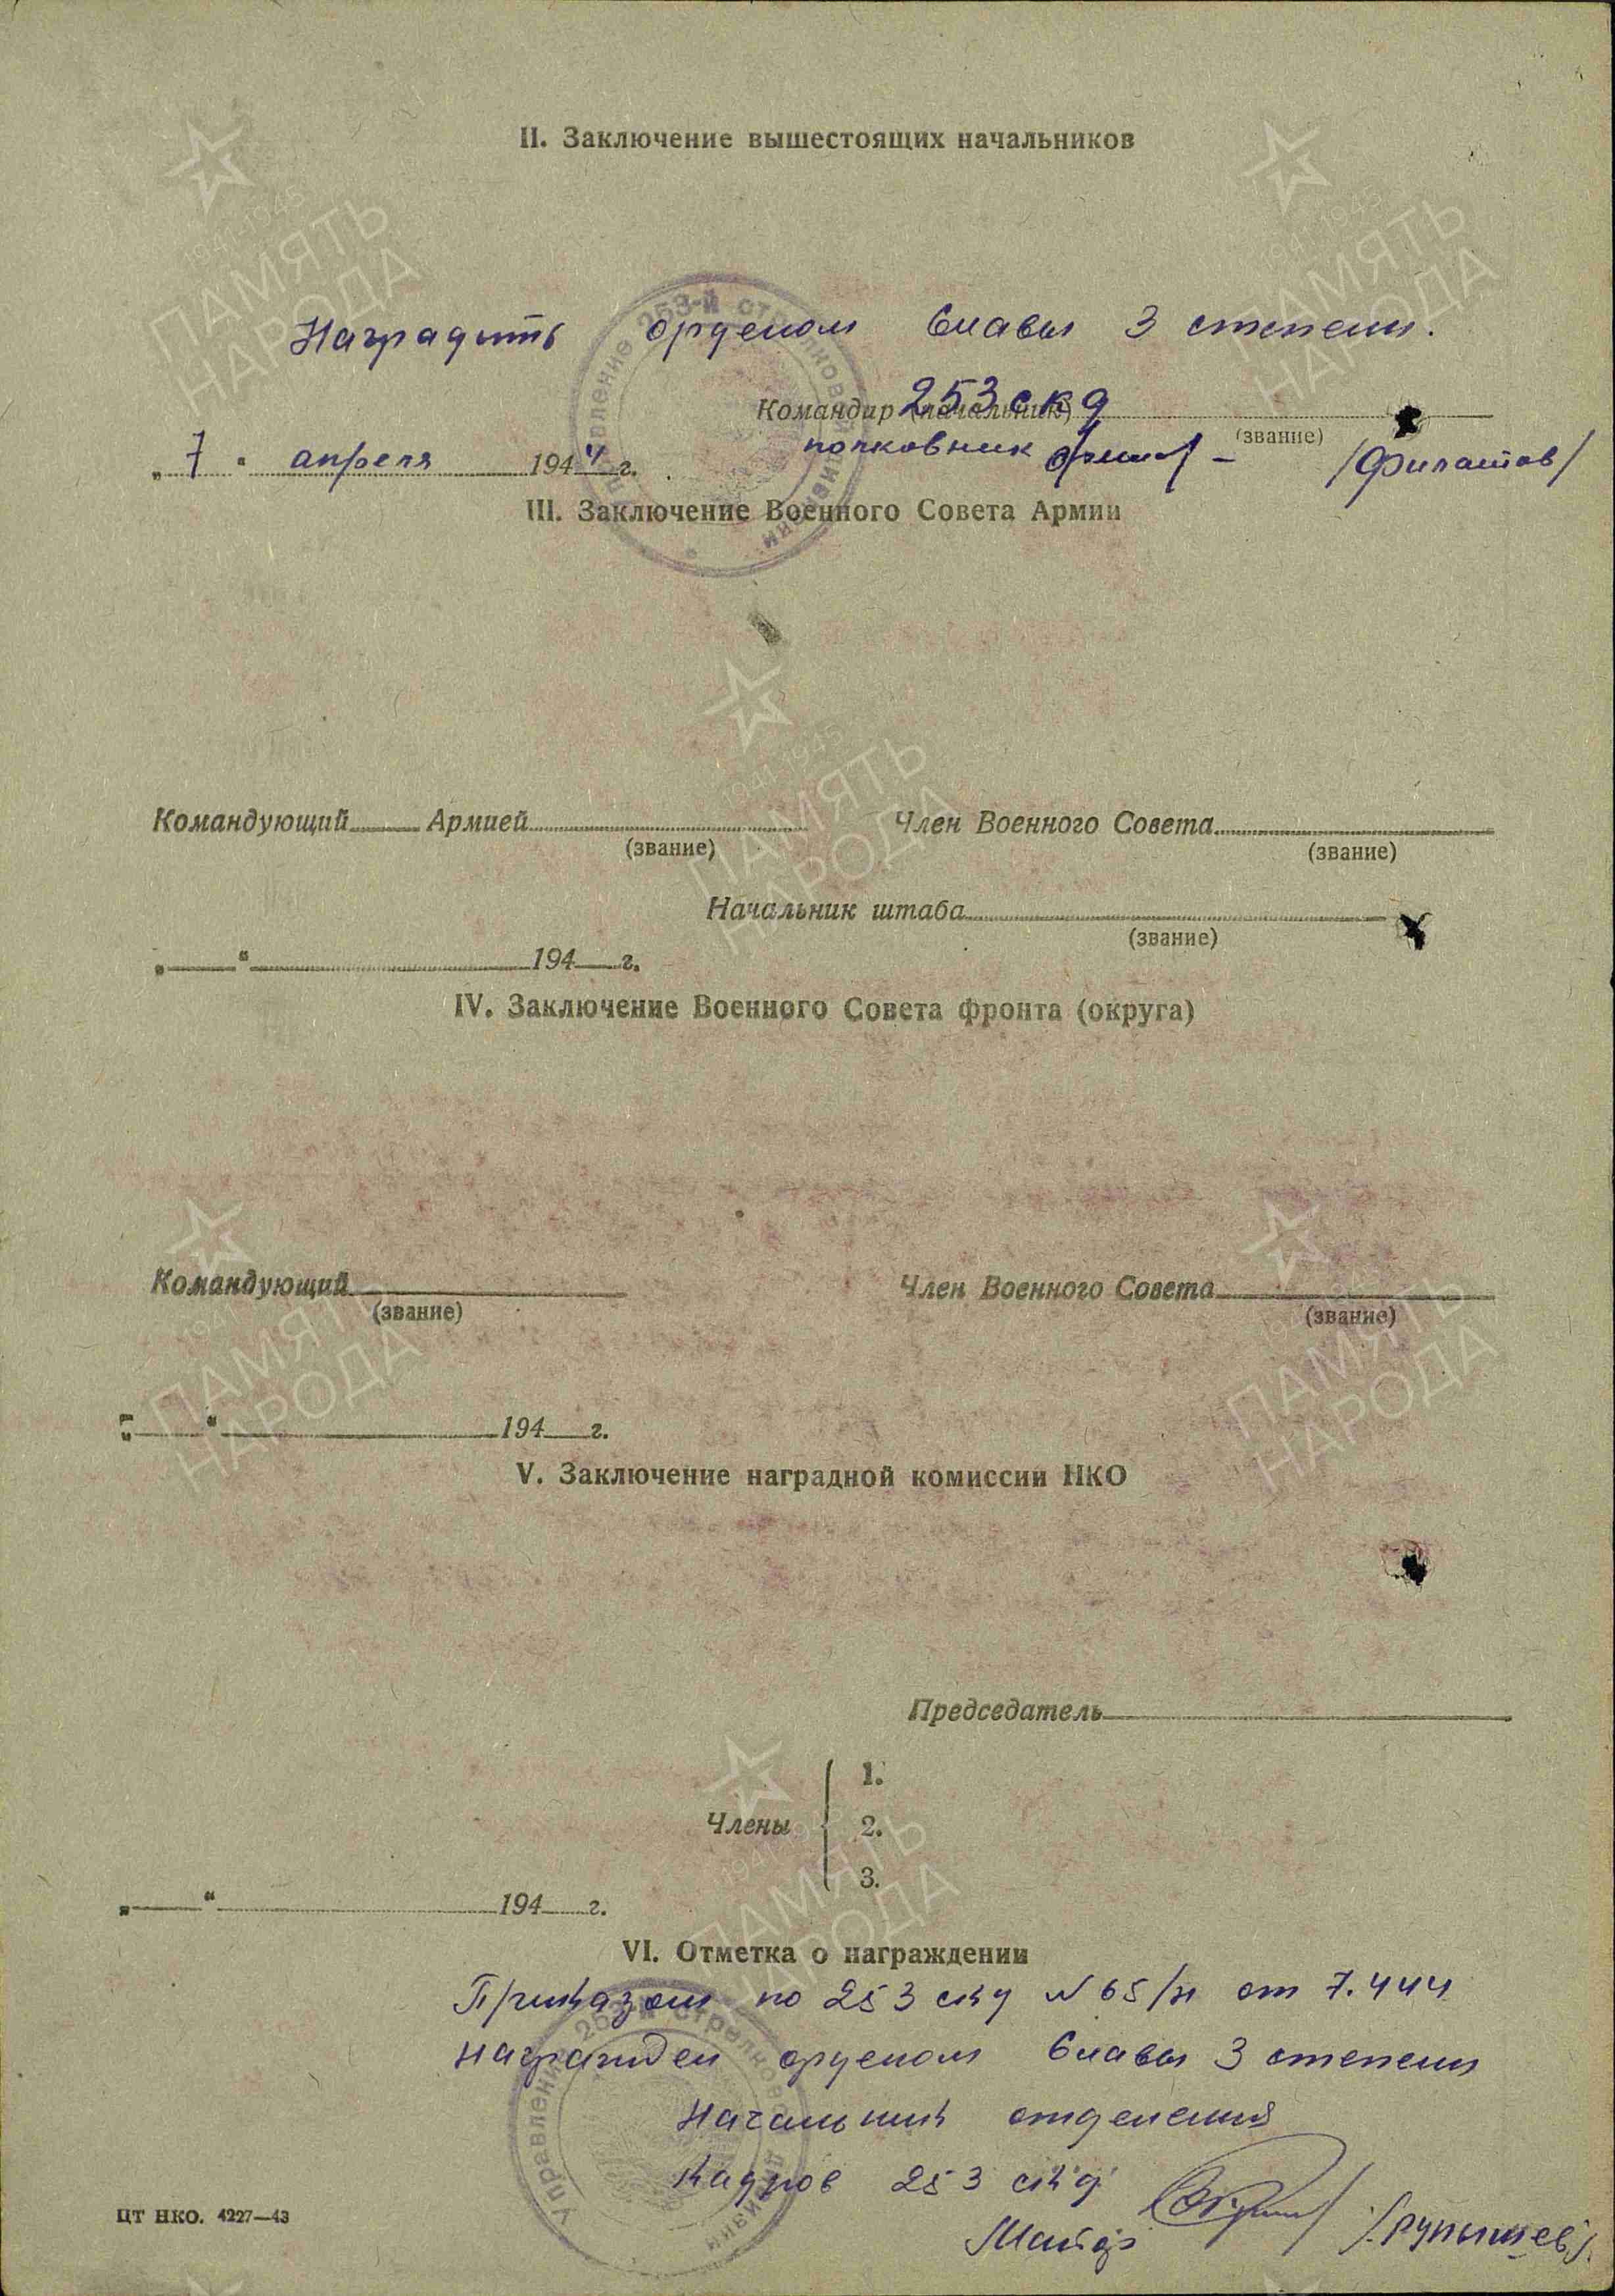 II. Заключение вышестоящих начальников
Наградить орденом Славы 3 степени.
Командир (начальник) 253 скд
(звание)
полковник /Филатов/
„7“ апреля 1944 г.
III. Заключение Военного Совета Армии
Командующий Армией Член Военного Совета
(звание) (звание)
Начальник штаба
(звание)
„ “ 194 г.
IV. Заключение Военного Совета фронта (округа)
Командующий Член Военного Совета
(звание) (звание)
„ “ 194 г.
V. Заключение наградной комиссии НКО
Председатель
1.
Члены 2.
3.
„ “ 194 г.
VI. Отметка о награждении
Приказом по 253 скд № 65/н от 7.4 44
награжден орденом Славы 3 степени
Начальник отделения
кадров 253 скд
Майор
ЦТ НКО. 4227—43
Управление 253-й стрелковой дивизии
Управление 253-й стрелковой дивизии
1941-1945
ПАМЯТЬ
НАРОДА